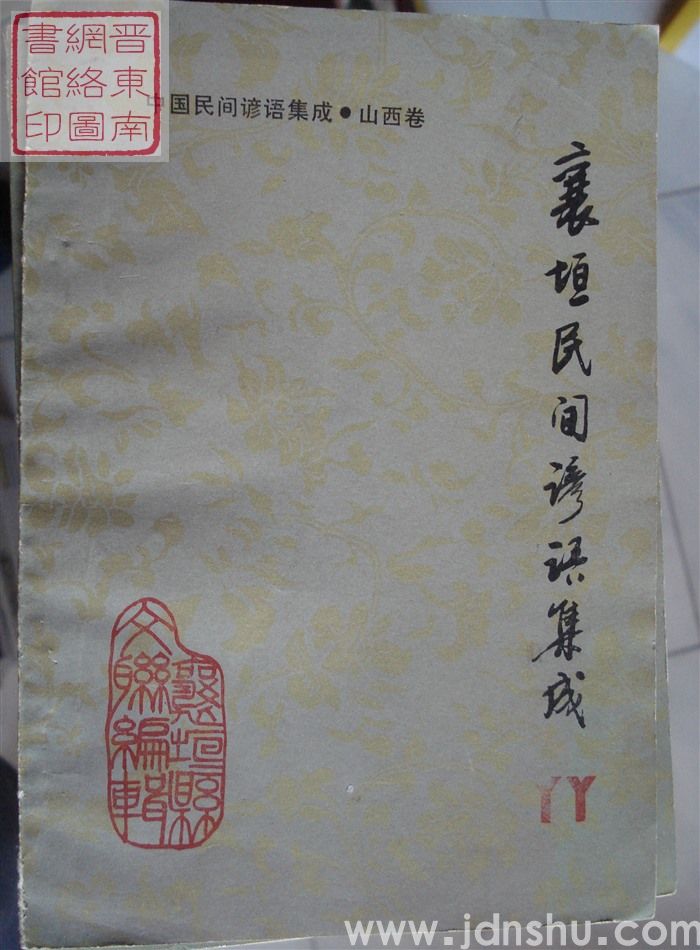 晋東南
網絡圖
書館印
中国民间谚语集成●山西卷
襄垣民间谚语集成
襄垣縣
文聯編輯
YY
www.jdnshu.com